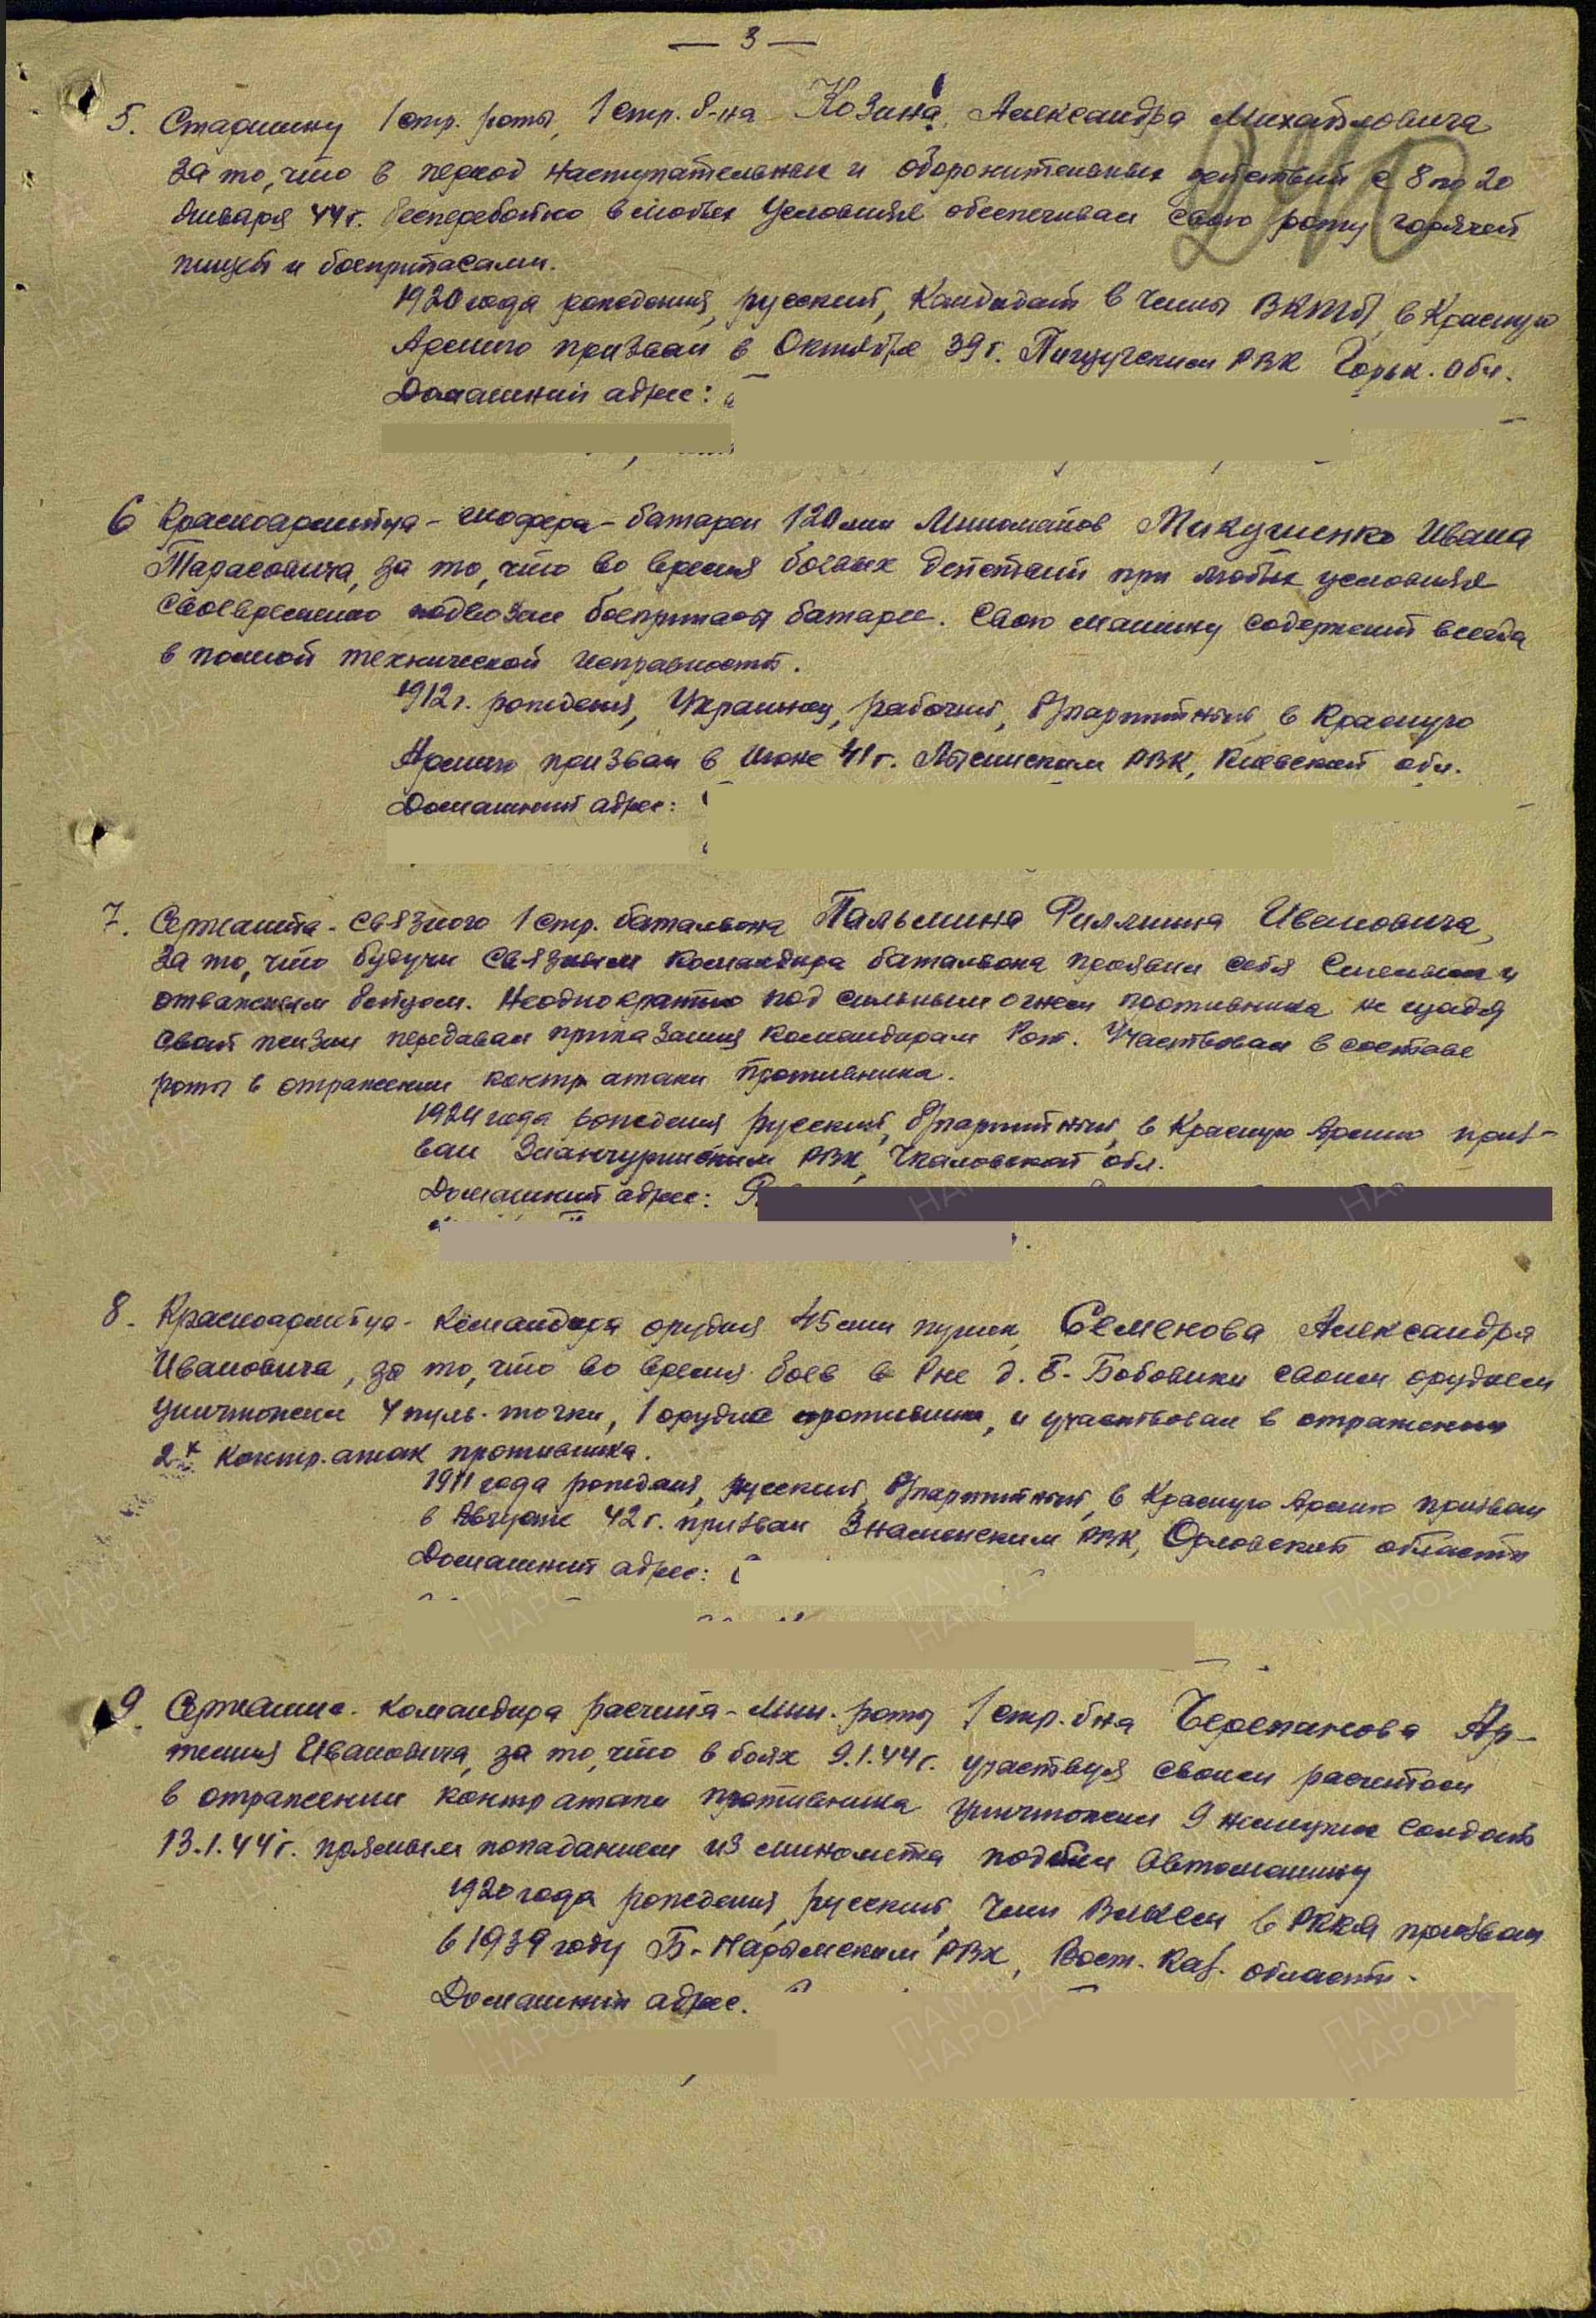 — 3 —
5. Старшину 1 стр. роты, 1 стр. б-на Козина, Александра Михайловича
за то, что в период наступательных и оборонительных действий с 8 по 20
января 44 г. бесперебойно в любых условиях обеспечивал свою роту горячей
пищей и боеприпасами.
1920 года рождения, русский, Кандидат в члены ВКПб, в Красную
Армию призван в Октябре 39 г. РВК Горьк. обл.
Домашний адрес:
6 Красноармейца - шофера - батареи 120 мм Минометов Микушенко Ивана
Тарасовича, за то, что во время боевых действий при любых условиях
своевременно подвозил боеприпасы батарее. Свою машину содержит всегда
в полной технической исправности.
1912 г. рождения, Украинец, рабочий, б/партийный, в Красную
Армию призван в Июне 41 г. РВК, Киевской обл.
Домашний адрес:
7. Сержанта - связного 1 стр. батальона Пальмина Филлиппа Ивановича,
за то, что будучи связным командира батальона проявил себя смелым и
отважным бойцом. Неоднократно под сильным огнем противника не щадя
своей жизни передавал приказания командирам Рот. Участвовал в составе
роты в отражении контр атаки противника.
1924 года рождения русский, б/партийный, в Красную Армию приз-
ван Зианчуринским РВК, Чкаловской обл.
Домашний адрес:
8. Красноармейца - командира орудия 45 мм пушек, Семенова Александра
Ивановича, за то, что во время боев в Р-не д. Б-Бобовики своим орудием
уничтожил 4 пуль. точки, 1 орудие противника, и участвовал в отражении
2х контр. атак противника.
1911 года рождения, русский, б/партийный, в Красную Армию призван
в Августе 42 г. призван Знаменским РВК, Орловской области
Домашний адрес:
9. Сержанта - командира расчета - Мин. роты 1 стр. б-на Черепанова Ар-
темия Ивановича, за то, что в боях 9.1.44 г. участвуя своим расчетом
в отражении контр атаки противника уничтожил 9 немецких солдат
13.1.44 г. прямым попаданием из миномета подбил Автомашину
1920 года рождения, русский, Член ВЛКСМ, в РККА призван
в 1939 году Б-Нарымским РВК, Вост. Каз. области.
Домашний адрес.
240
ПАМЯТЬ
НАРОДА
ПАМЯТЬ
НАРОДА